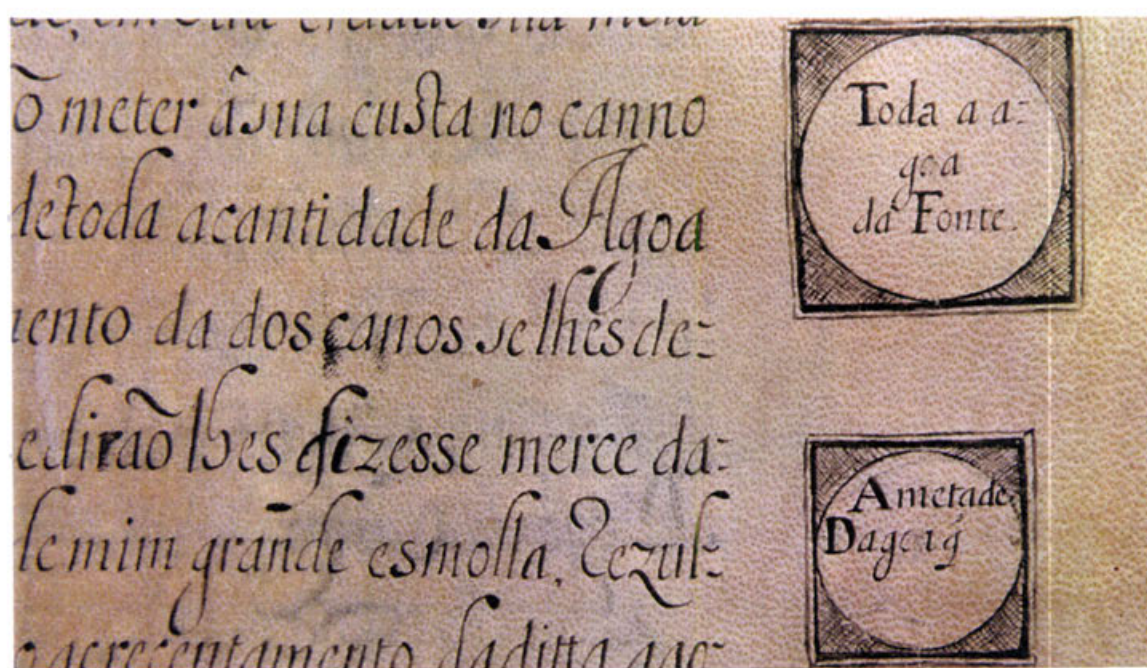 õ meter â sua custa no canno
de toda acantidade da Agoa
ento da dos canos se lhes de=
edirão lhes fizesse merce da=
de mim grande esmolla. Rezul=
acrecentamento daditta ago=
Toda a a=
goa
da Fonte.
A metade
Dagoa q̃